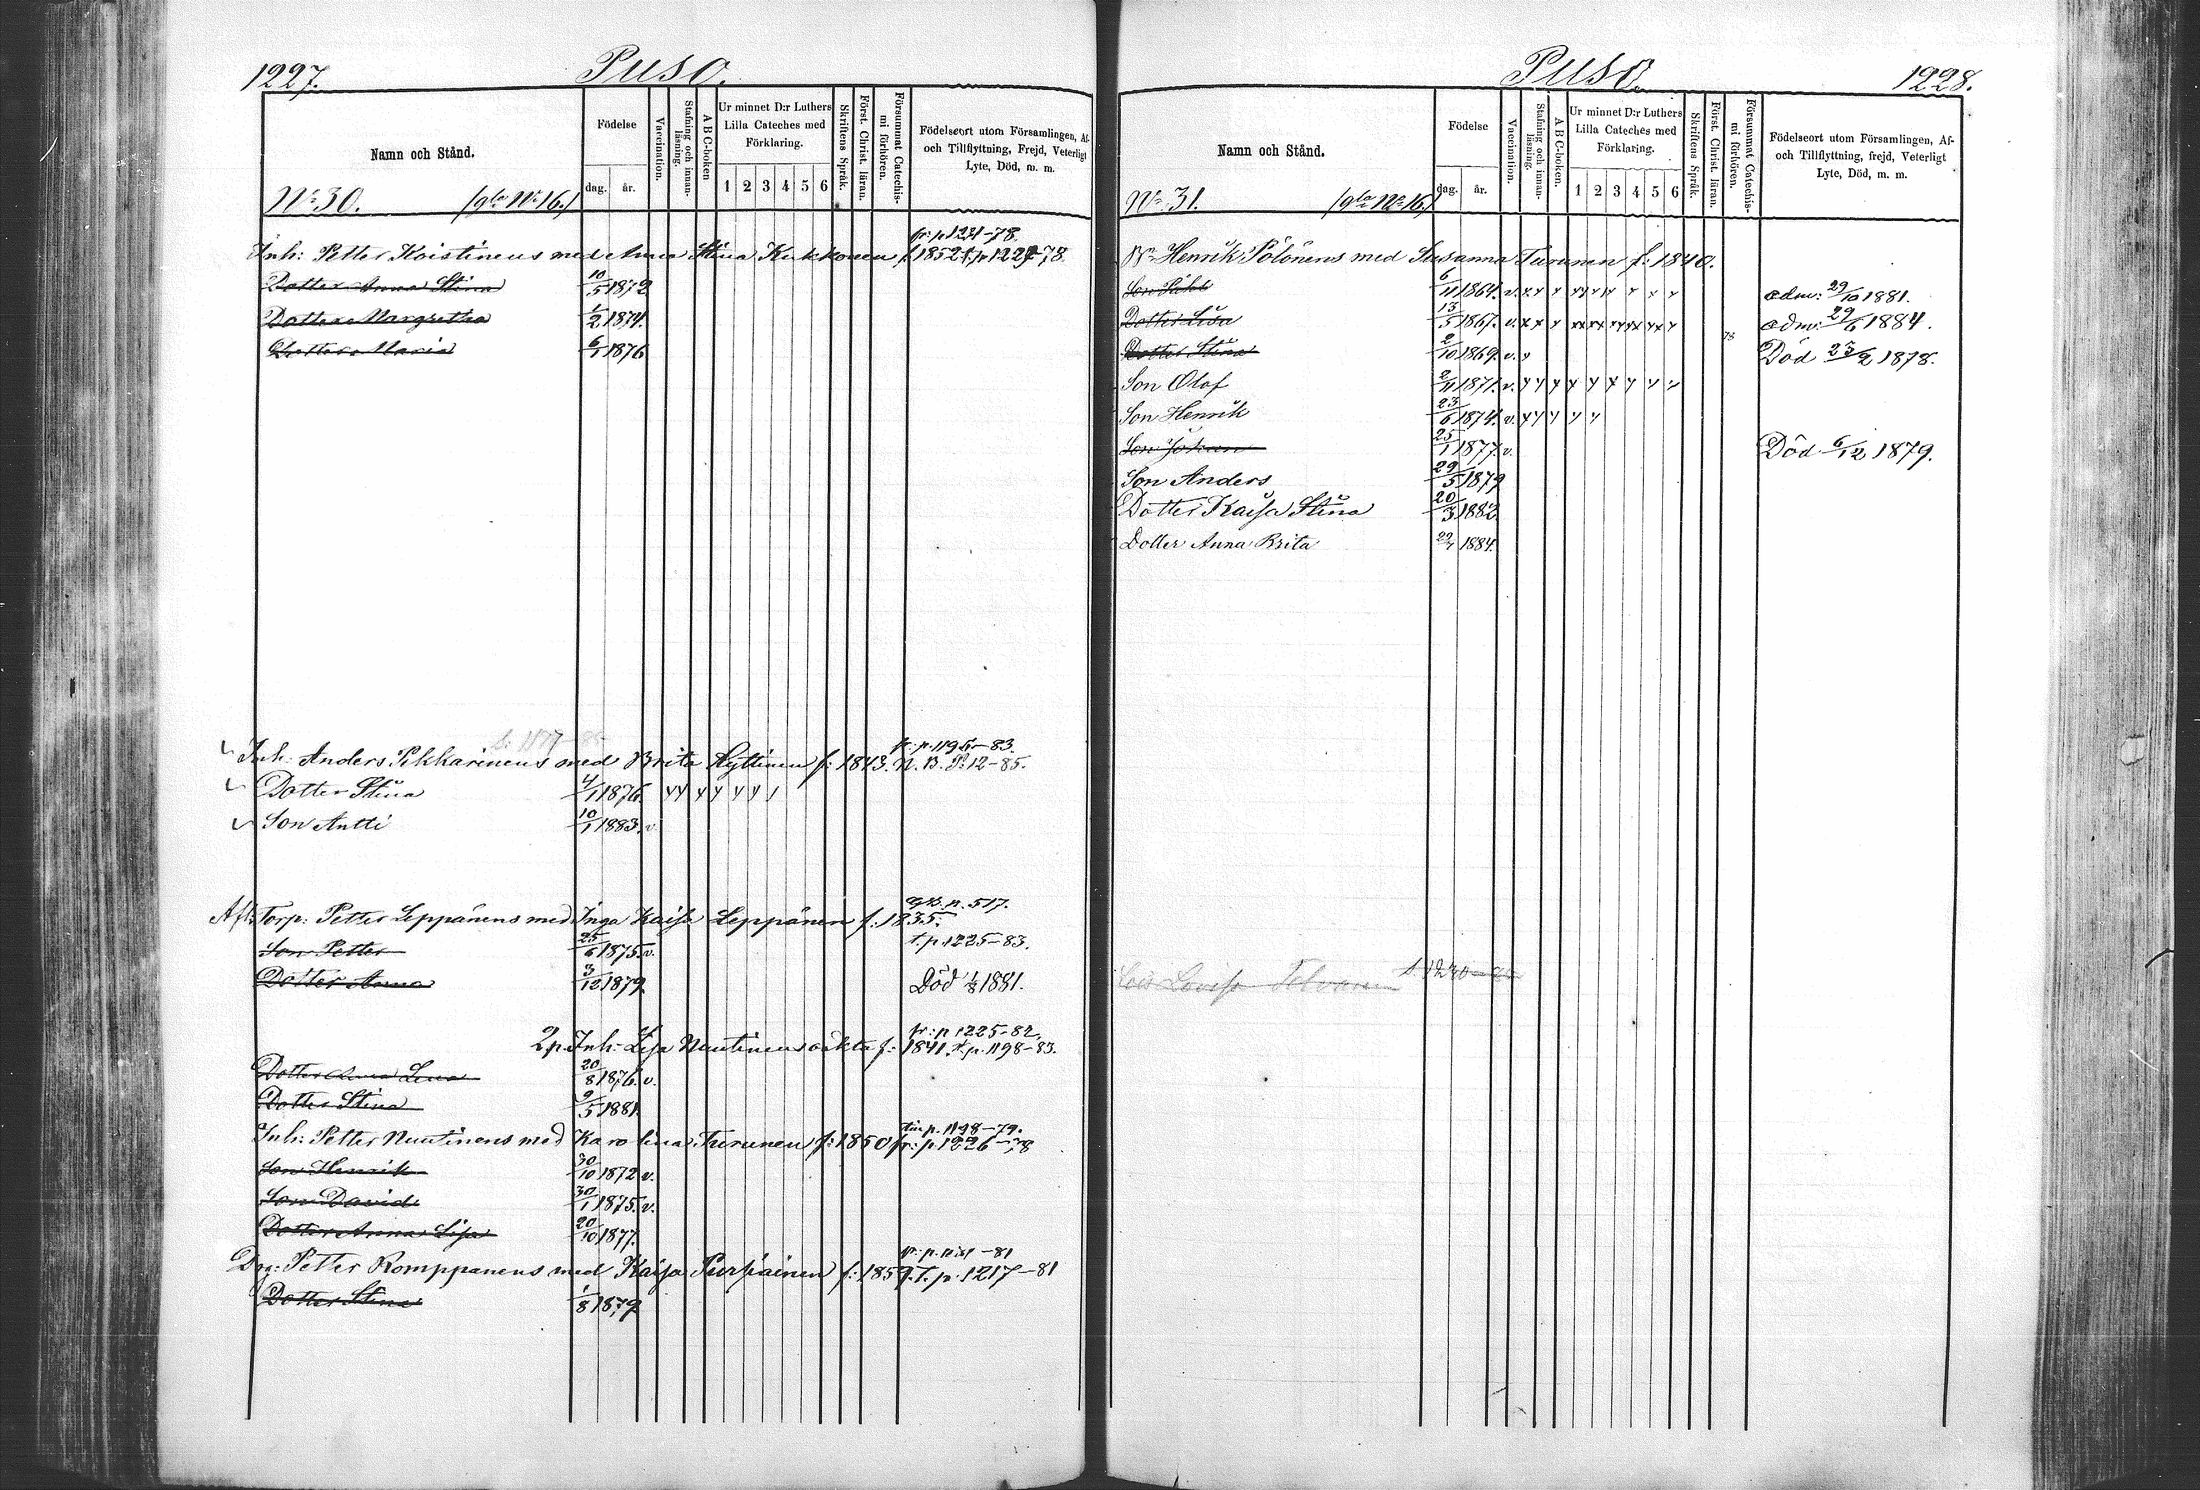 1227.
Puso.
Namn och Stånd.
Födelse
dag. år.
Vaccination.
Stafning och innanläsning.
A B C-boken
Ur minnet D:r Luthers Lilla Cateches med Förklaring.
1 2 3 4 5 6
Skriftens Språk.
Först. Christ. läran.
Försummat Catechismi förhören.
Födelseort utom Församlingen, Af- och Tillflyttning, Frejd, Veterligt Lyte, Död, m. m.
No 30. (gla No 16.)
fr: p 1231-78.
Inh: Petter Koistinens med Anna Stina Kukkonen f. 1852 t. p 1229-78
Dotter Anna Stina 10/5 1872
Dotter Margretha 1/2 1874.
Dotter Maria 6/1 1876
fr: p. 1195-83.
Inh: Anders Pikkarinens med Brita Hyttinen f: 1843. N. B. P: 12-85.
Dotter Stina 4/1 1876.
Son Antti 10/1 1883. v.
p. 517.
Afl: Torp: Petter Leppänens med Inga Kaisa Leppänen f: 1835.
Son Petter 25/6 1875. v. t. p 1225-83.
Dotter Anna 3/12 1879 Död 1/8 1881.
fr: p 1225-82.
2 p. Inh: Lisa Nuutinens oäkta f: 1841. t. p. 1198-83.
Dotter Anna Lena 20/8 1876. v.
Dotter Stina 9/5 1881
p. 1198-79.
Inh: Petter Nuutinens med Karolina Turunen f: 1850 fr: p 1226-78
Son Henrik 30/10 1872 v.
Son David 30/1 1875. v.
Dotter Anna Lisa 20/10 1877.
-81
Drg: Petter Romppanens med Kaisa Purhainen f: 1859. T. p. 1217-81
Dotter Stina 1/8 1879
Puso.
1228.
Namn och Stånd.
Födelse
dag. år.
Vaccination.
Stafning och innanläsning.
A B C-boken.
Ur minnet D:r Luthers Lilla Cateches med Förklaring.
1 2 3 4 5 6
Skriftens Språk.
Först. Christ. läran.
Försummat Catechismi förhören.
Födelseort utom Församlingen, Af- och Tillflyttning, frejd, Veterligt Lyte, Död, m. m.
No 31. (gla No 16.)
Henrik Pölönens med Susanna Turunen f: 1840.
Son 6/11 1864. v. adm: 29/10 1881.
Dotter Lisa 13/5 1867. v. adm: 29/6 1884.
Dotter Stina 2/10 1869. v. 78 Död 23/2 1878.
Son Olof 2/11 1871. v.
Son Henrik 23/6 1874. v.
Son Johan 25/1 1877. v. Död 6/12 1879.
Son Anders 29/5 1879
Dotter Kaisa Stina 20/3 1882
Dotter Anna Brita 1884.
Lovisa